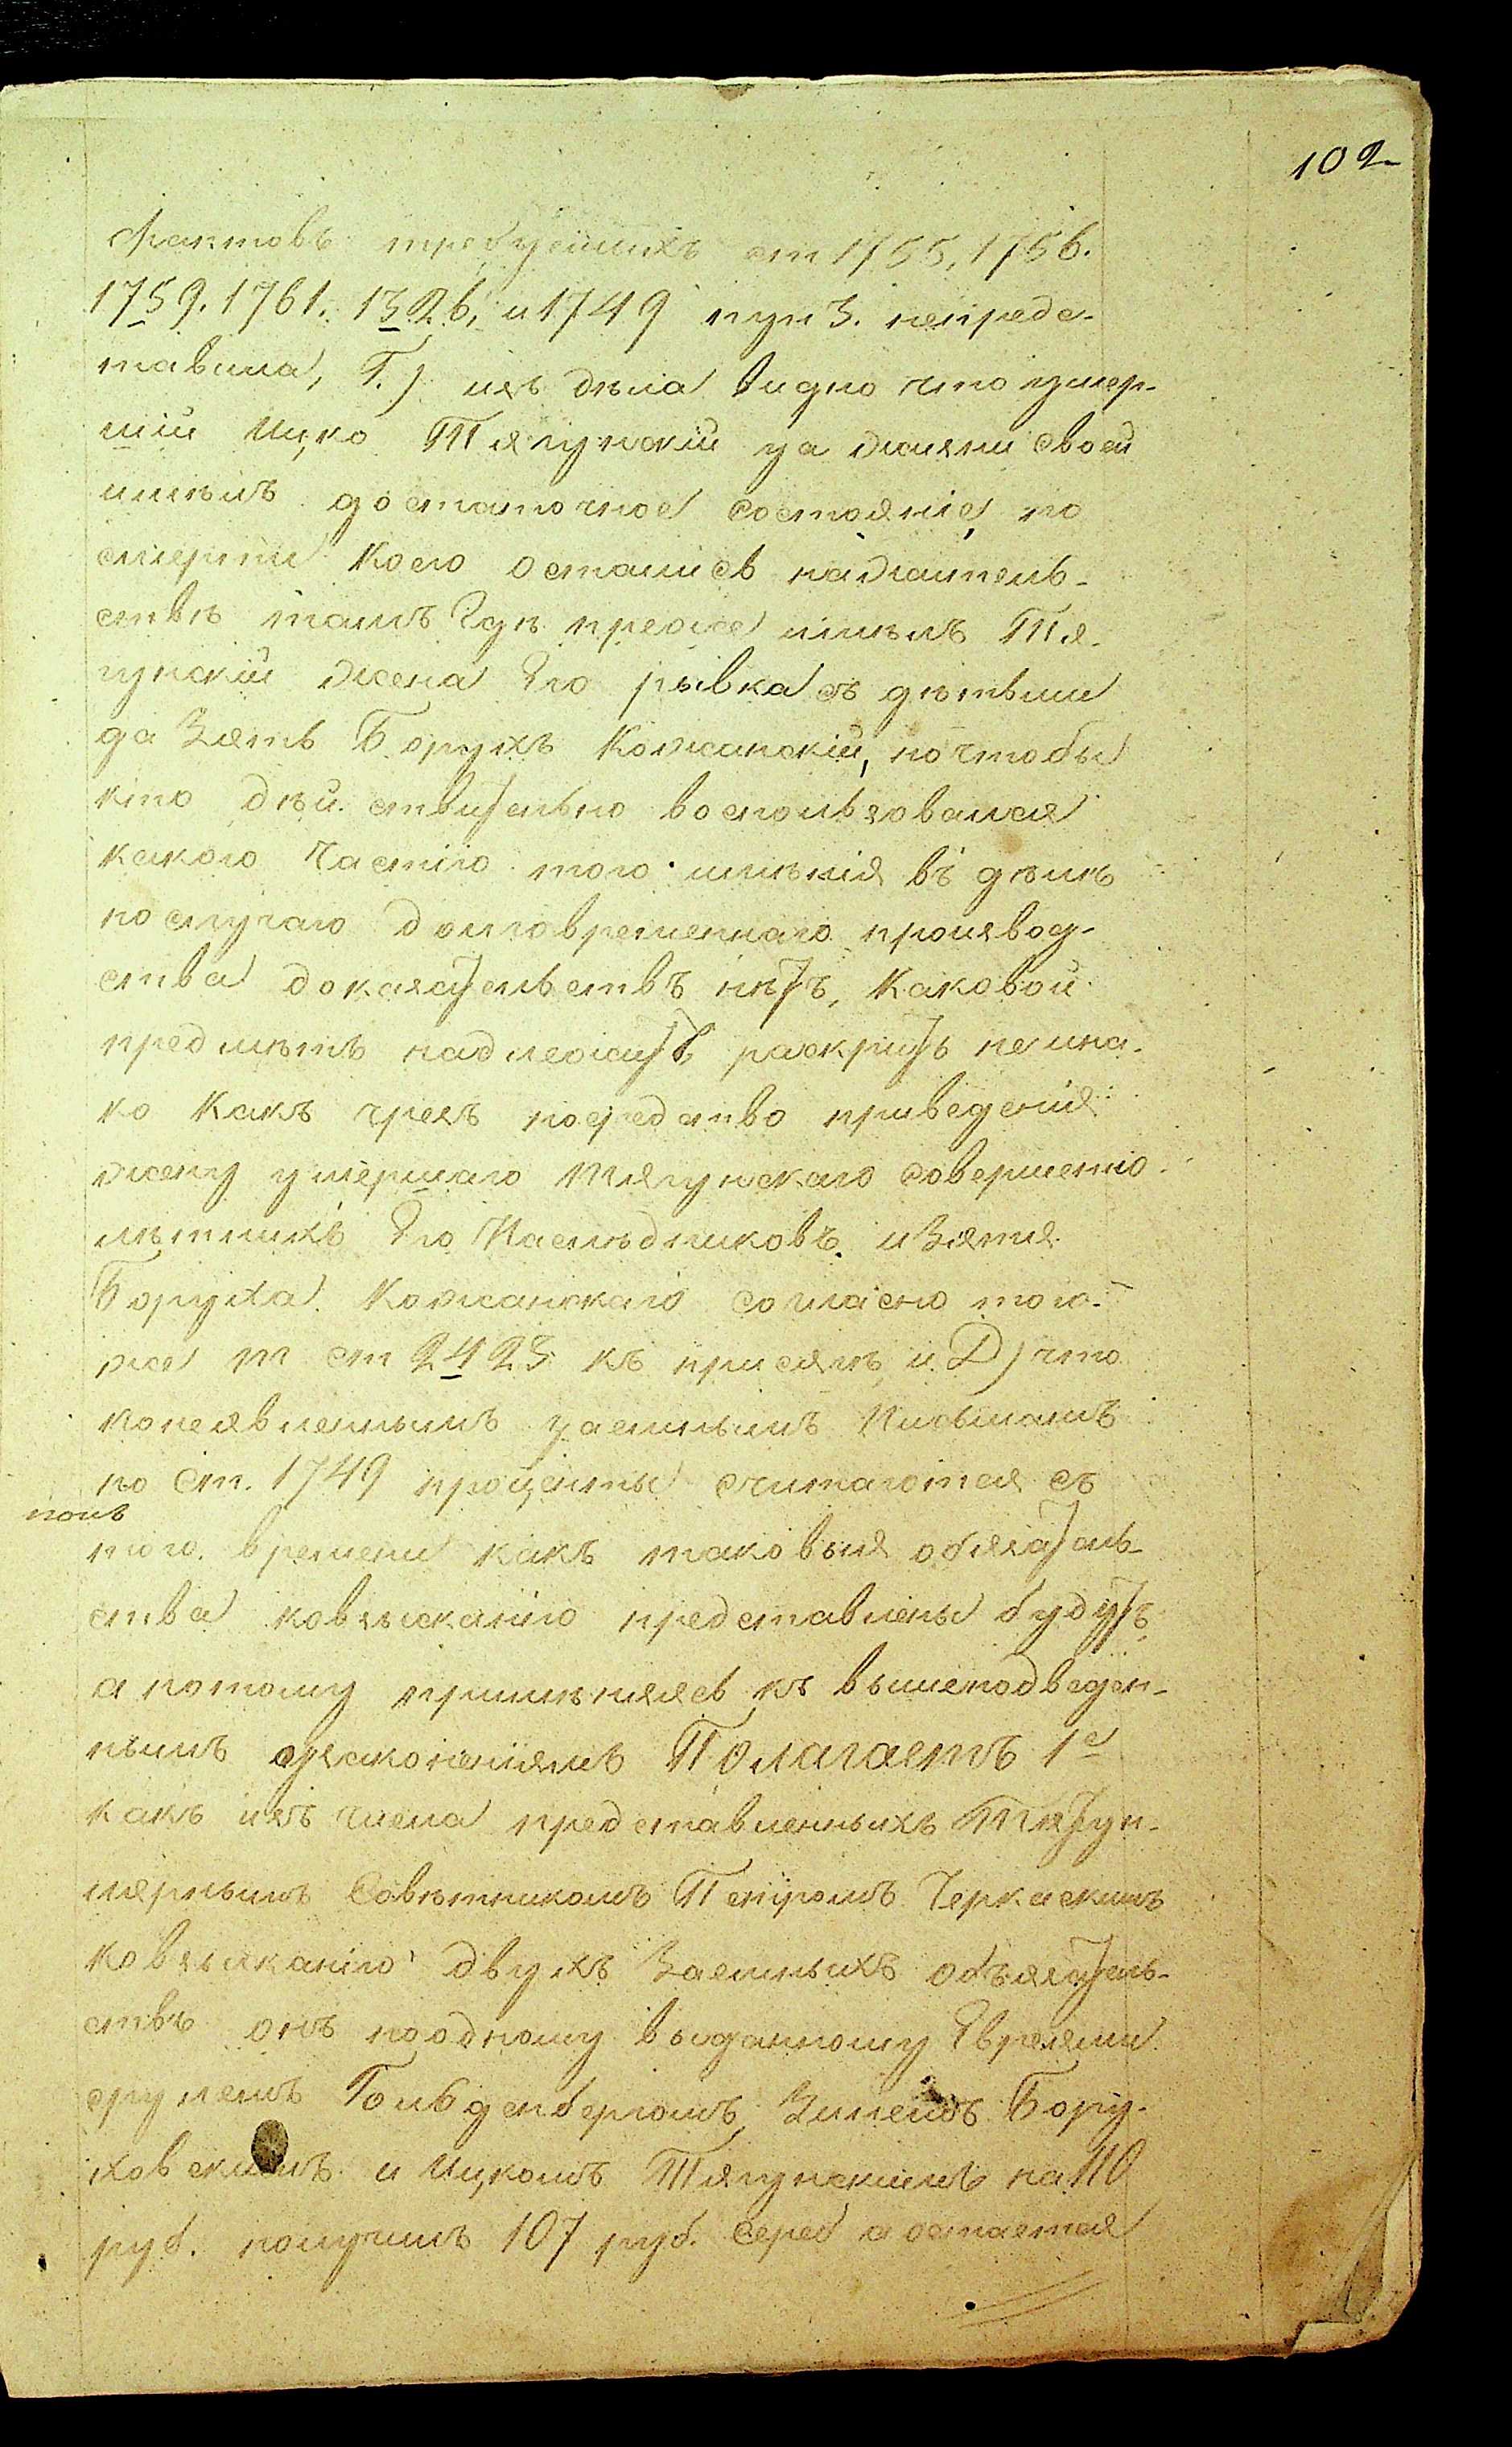 102
фактовъ требуемыхъ ст 1755, 1756.
1759. 1761. 1326, и 1749 пун 3. непредс-
тавила, Г.) изъ дѣла видно что умер-
шій Ицко Тягунскій за жизни своей
имѣлъ достаточное состояніе, по
смерти коего остались на жительс-
ствѣ тамъ где прежде имѣлъ Тя-
гунскій жена Его рывка съ дѣтьми
да Зять Борухъ Кожанскій, но чтобы
кто дѣйствительно воспользовался
какою частію того имѣнія въ дѣлѣ
по случаю долговременнаго производ-
ства доказательствъ нѣтъ, каковой
предмѣтъ надлежитъ раскрить не ина-
ко какъ чрезъ посредство приведенія
жену умершаго Тягунскаго совершенно
лѣтнихъ Его Наслѣдниковъ и Зятя
Боруха Кожанскаго согласно того-
же т ст 2423 къ присягѣ, и Д) что
по неявленнымъ заемнымъ письмамъ
по ст. 1749 проценты считаются съ
того времени какъ таковыя обязатель-
ства ко взысканію представлены будутъ,
а потому примѣняясь къ вышеподведен-
нымъ узаконеніямъ Полагаетъ 1е
какъ изъ числа представленныхъ Титуляр-
нымъ Совѣтникомъ Петромъ Черкаскимъ
ко взысканію двухъ Заемныхъ обьязатель-
ствъ онъ по одному выданному Евреями
Гольденбергомъ, Борух-
ховскимъ и Ицкомъ Тягунскимъ на 110
руб. получилъ 107 руб. сереб а остается